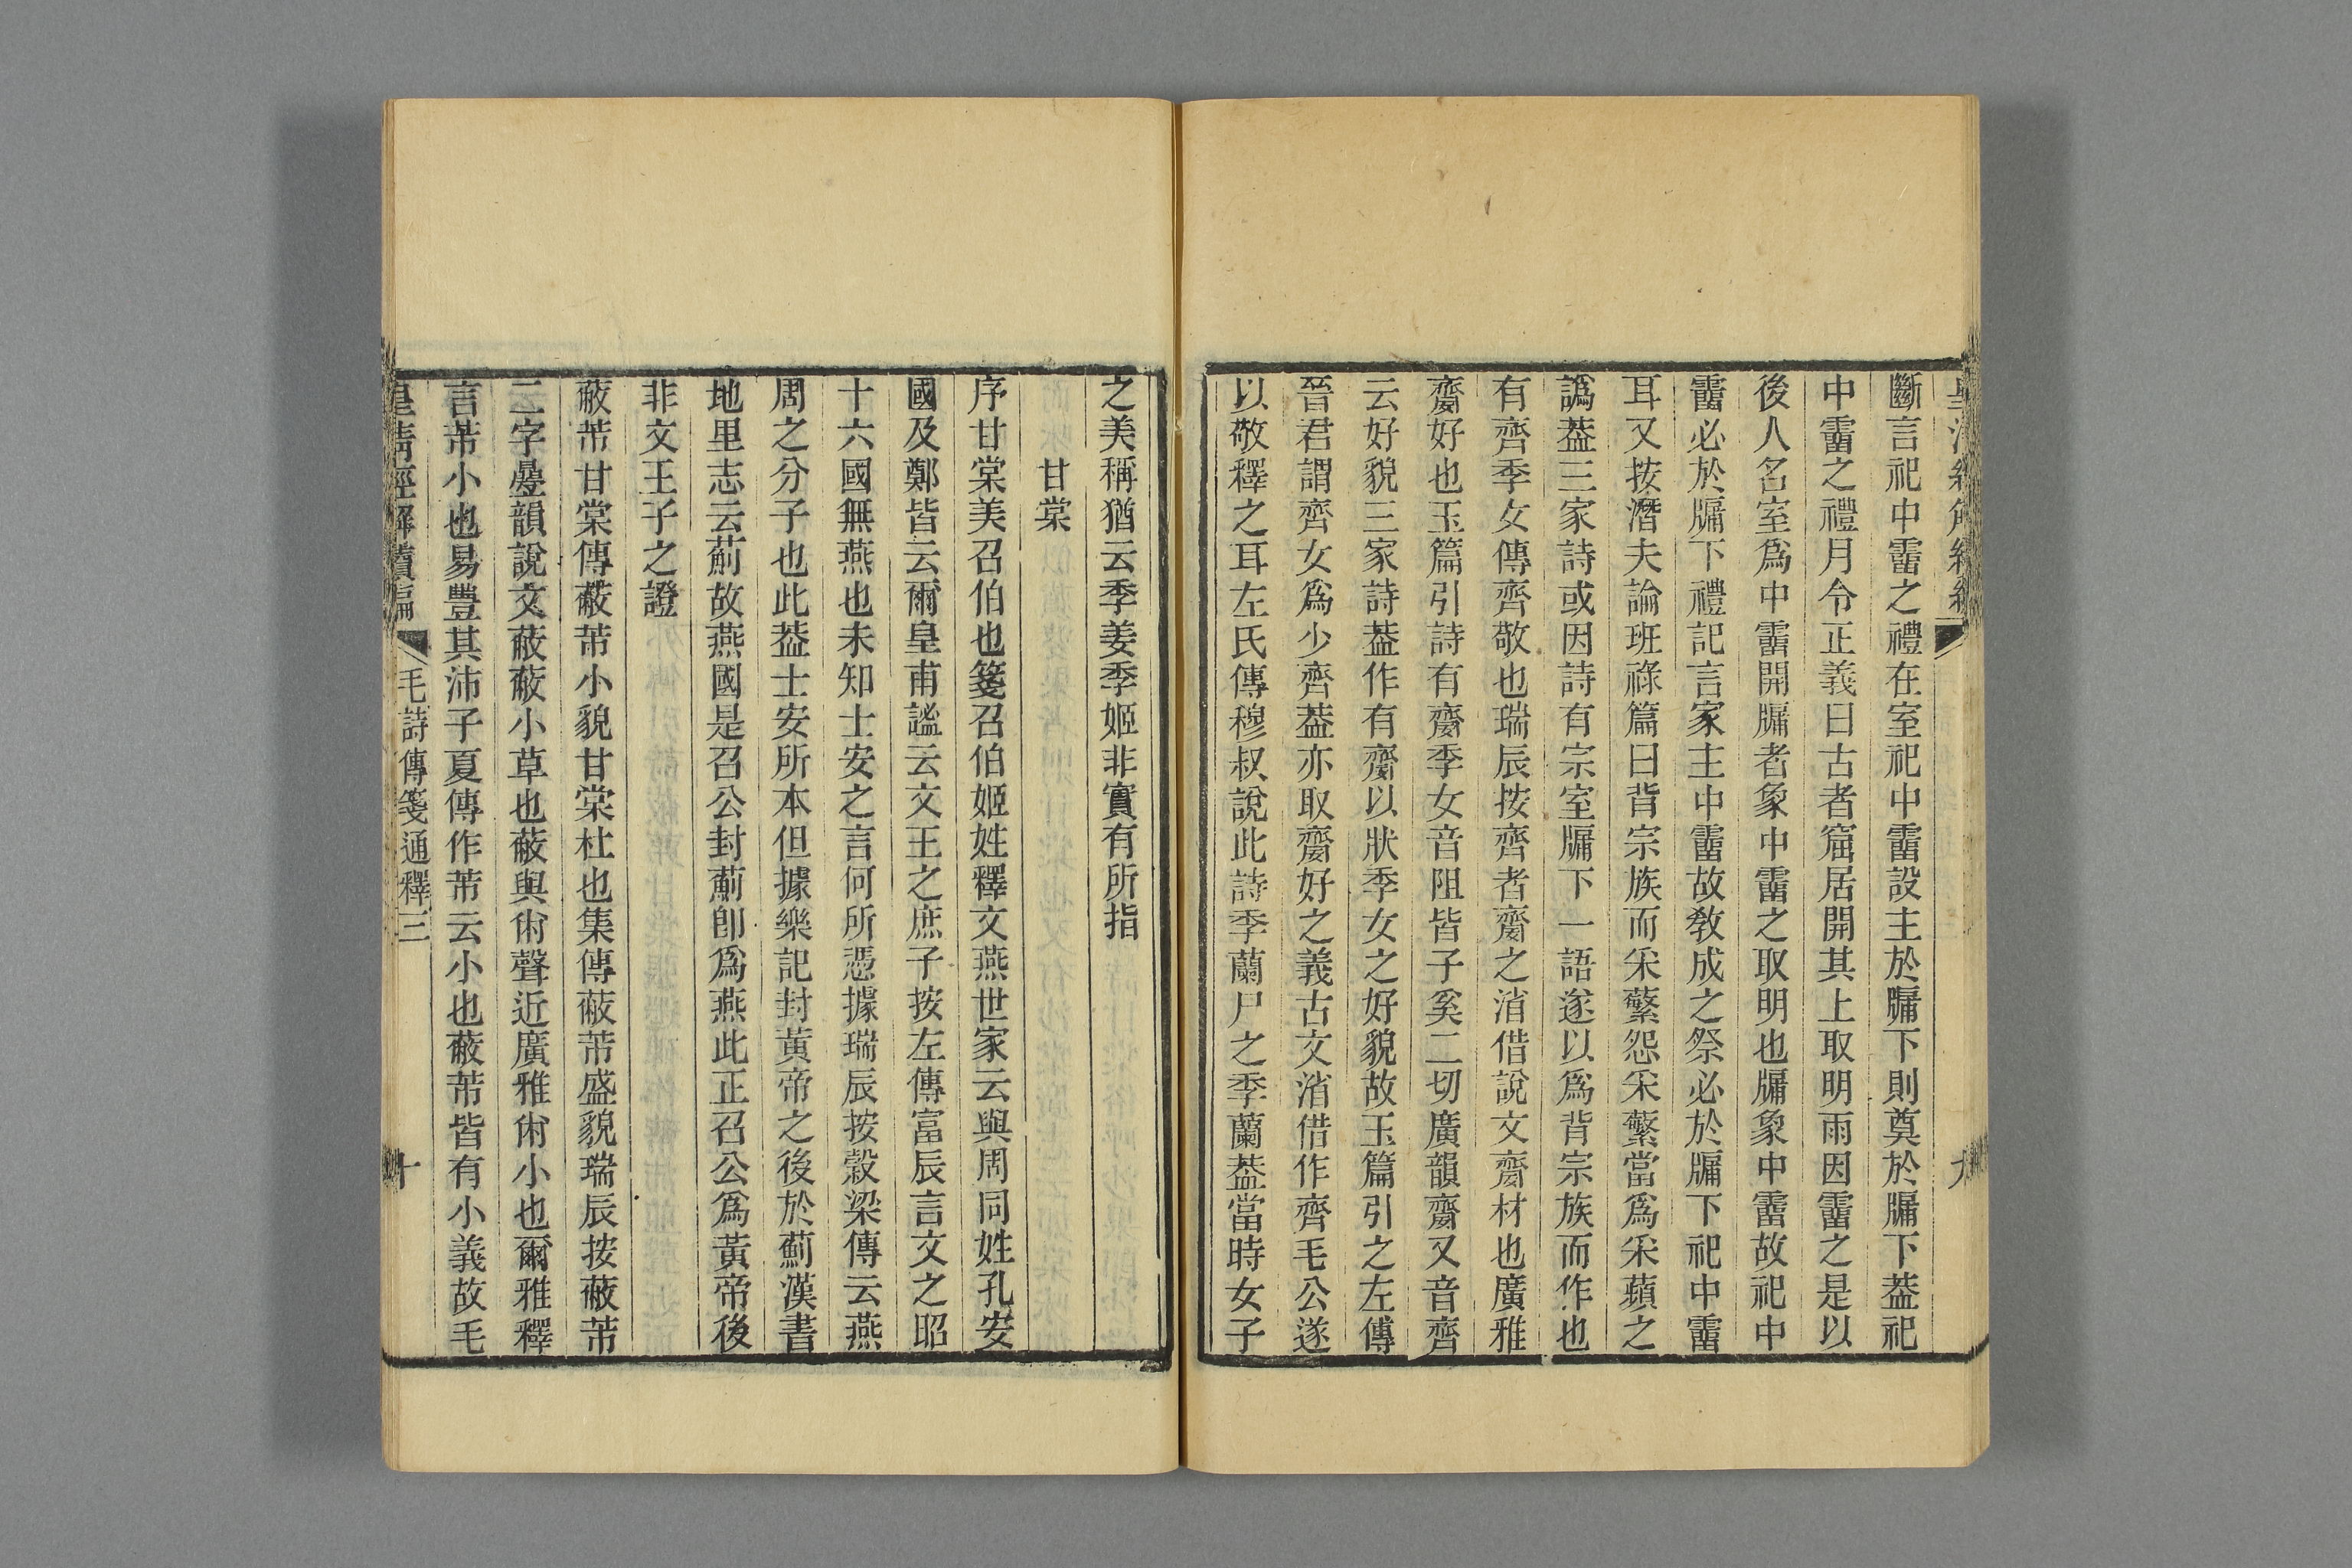 斷言祀中霤之禮在室祀中霤設主於牖下則奠於牖下葢祀
中霤之禮月令正義曰古者窟居開其上取明雨因霤之是以
後人名室爲中霤開牖者象中霤之取明也牖象中霤故祀中
霤必於牖下禮記言家主中霤故敎成之祭必於牖下祀中霤
耳又按潛夫論班祿篇曰背宗族而采蘩怨采蘩當爲采蘋之
譌葢三家詩或因詩有宗室牖下一語遂以爲背宗族而作也
有齊季女傳齊敬也瑞辰按齊者齌之消借說文齌材也廣雅
齌好也玉篇引詩有齌季女音阻皆子奚二切廣韻齌又音齊
云好貌三家詩葢作有齌以狀季女之好貌故玉篇引之左傳
晉君謂齊女爲少齊葢亦取齌好之義古文消借作齊毛公遂
以敬釋之耳左氏傳穆叔說此詩季蘭尸之季蘭葢當時女子
之美稱猶云季姜季姬非實有所指
甘棠
序甘棠美召伯也箋召伯姬姓釋文燕世家云與周同姓孔安
國及鄭皆云爾皇甫謐云文王之庶子按左傳富辰言文之昭
十六國無燕也未知士安之言何所憑據瑞辰按穀梁傳云燕
周之分子也此葢士安所本但據樂記封黃帝之後於薊漢書
地里志云薊故燕國是召公封薊卽爲燕此正召公爲黃帝後
非文王子之證
蔽芾甘棠傳蔽芾小貌甘棠杜也集傳蔽芾盛貌瑞辰按蔽芾
二字疊韻說文蔽蔽小草也蔽與㡀聲近廣雅㡀小也爾雅釋
言芾小也易豐其沛子夏傳作芾云小也蔽芾皆有小義故毛
皇清經解續編
毛詩傳箋通釋三
十